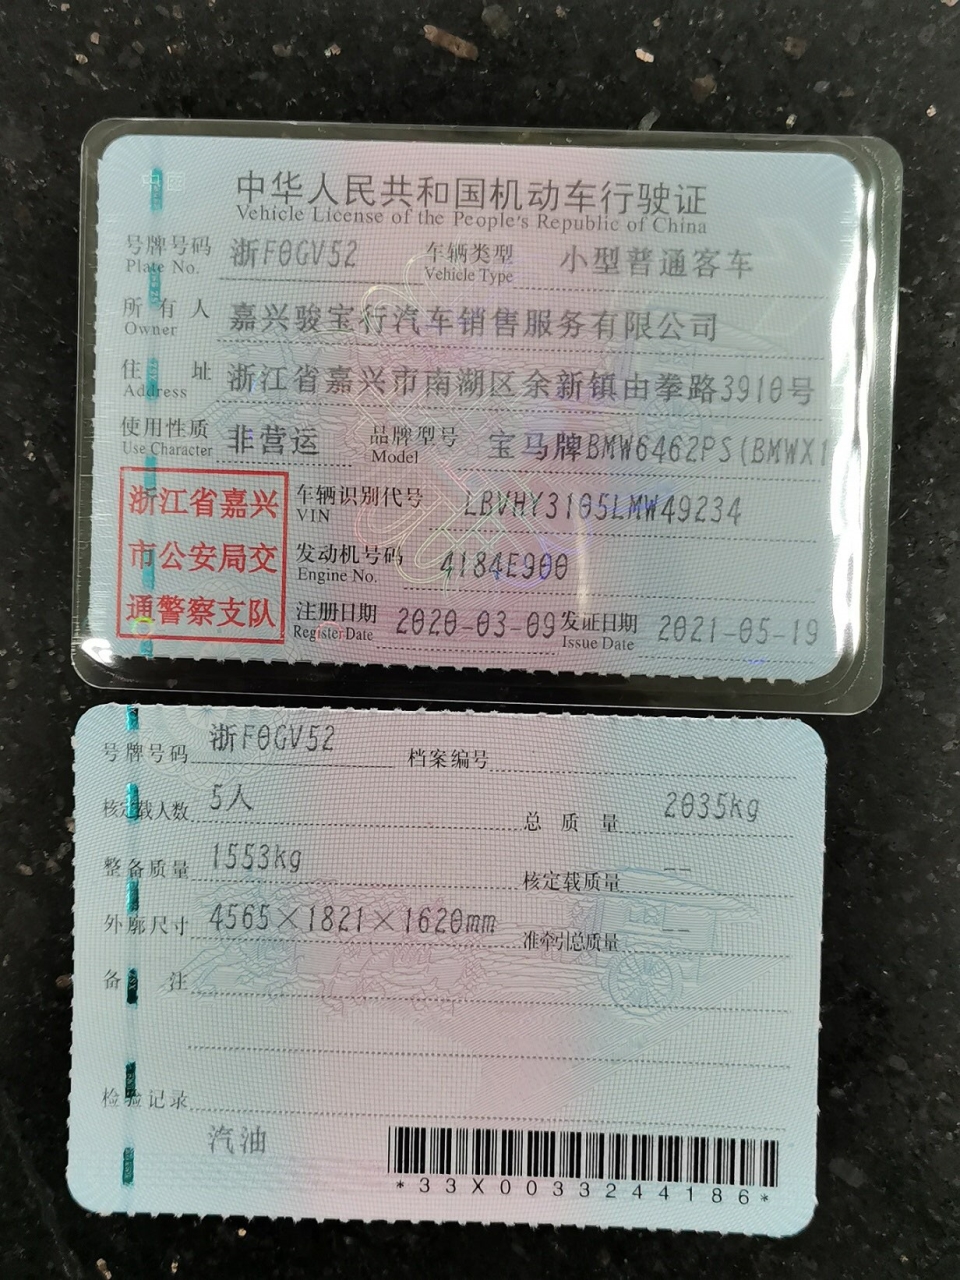 中国
中华人民共和国机动车行驶证
Vehicle License of the People's Republic of China
号牌号码 浙F0GV52 车辆类型 小型普通客车
Plate No. Vehicle Type
所有人 嘉兴骏宝行汽车销售服务有限公司
Owner
住址 浙江省嘉兴市南湖区余新镇由拳路3910号
Address
使用性质 非营运 品牌型号 宝马牌BMW6462PS(BMWX1
Use Character Model
浙江省嘉兴
市公安局交
通警察支队
车辆识别代号 LBVHY3105LMW49234
VIN
发动机号码 4184E900
Engine No.
注册日期 2020-03-09 发证日期 2021-05-19
Register Date Issue Date
号牌号码 浙F0GV52 档案编号
核定载人数 5人 总质量 2035kg
整备质量 1553kg 核定载质量 --
外廓尺寸 4565×1821×1620mm 准牵引总质量 --
备注
检验记录
汽油
*33X0033244186*